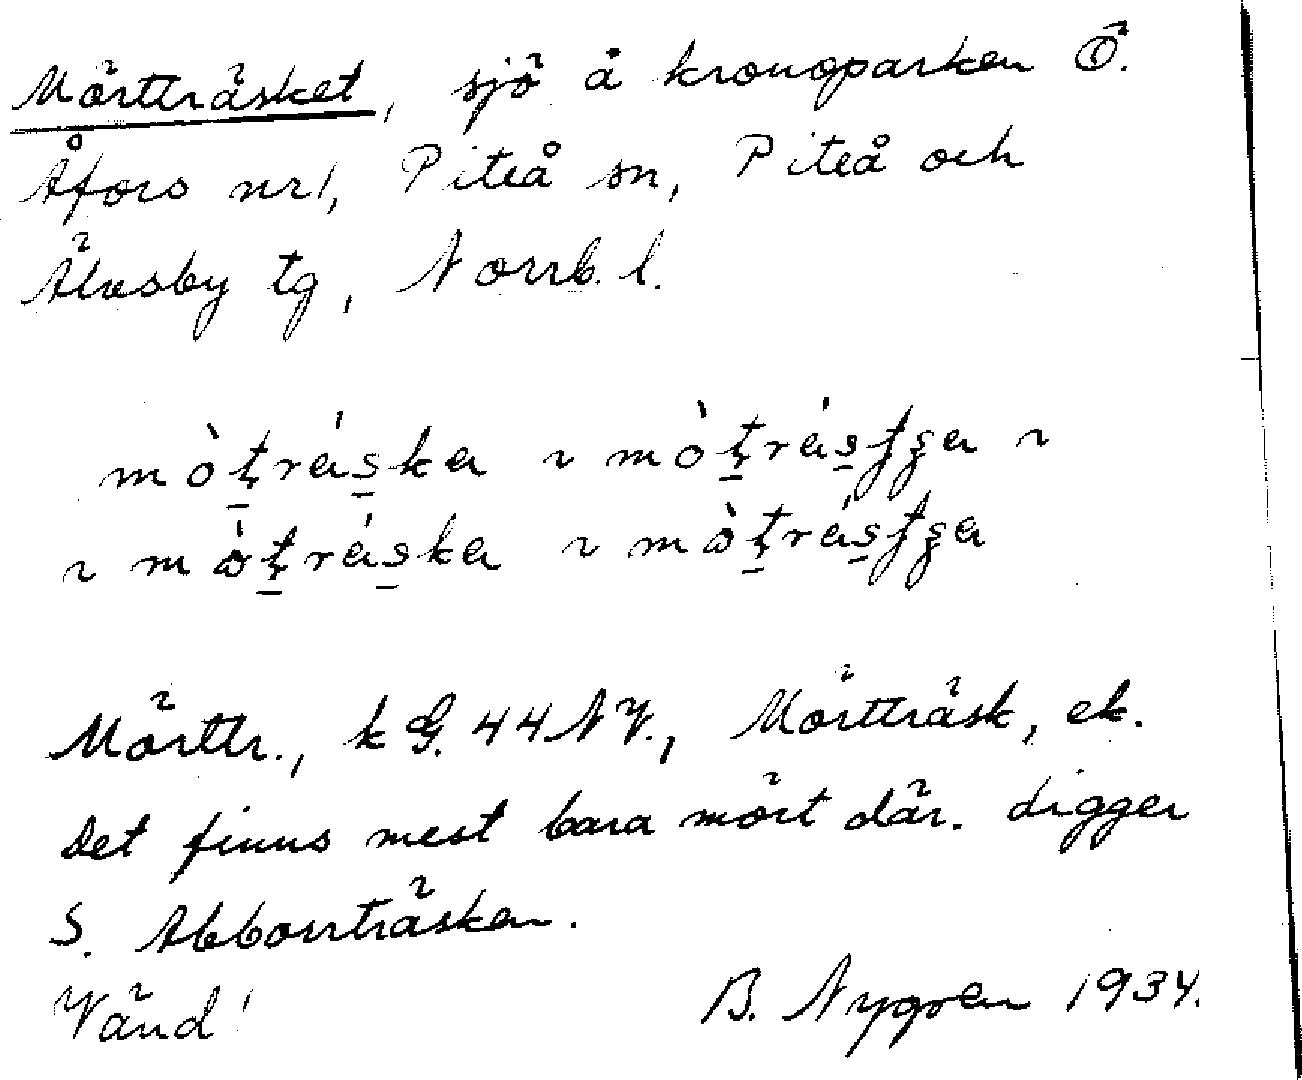 Mörtträsket, sjö å kronoparken Ö.
Åfors nr 1, Piteå sn, Piteå och
Älvsby tg, Norrb. l.
mò̱ṭráṣka ~ mò̱ṭráṣʄʂa ~
~ mò̱ṭráṣka ~ mò̱ṭráṣʄʂa
Mörttr., k G. 44 NV., Mörtträsk, ek.
Det finns mest bara mört där. Ligger
S. Abborrträsken.
Vänd!
B. Nygren 1934.